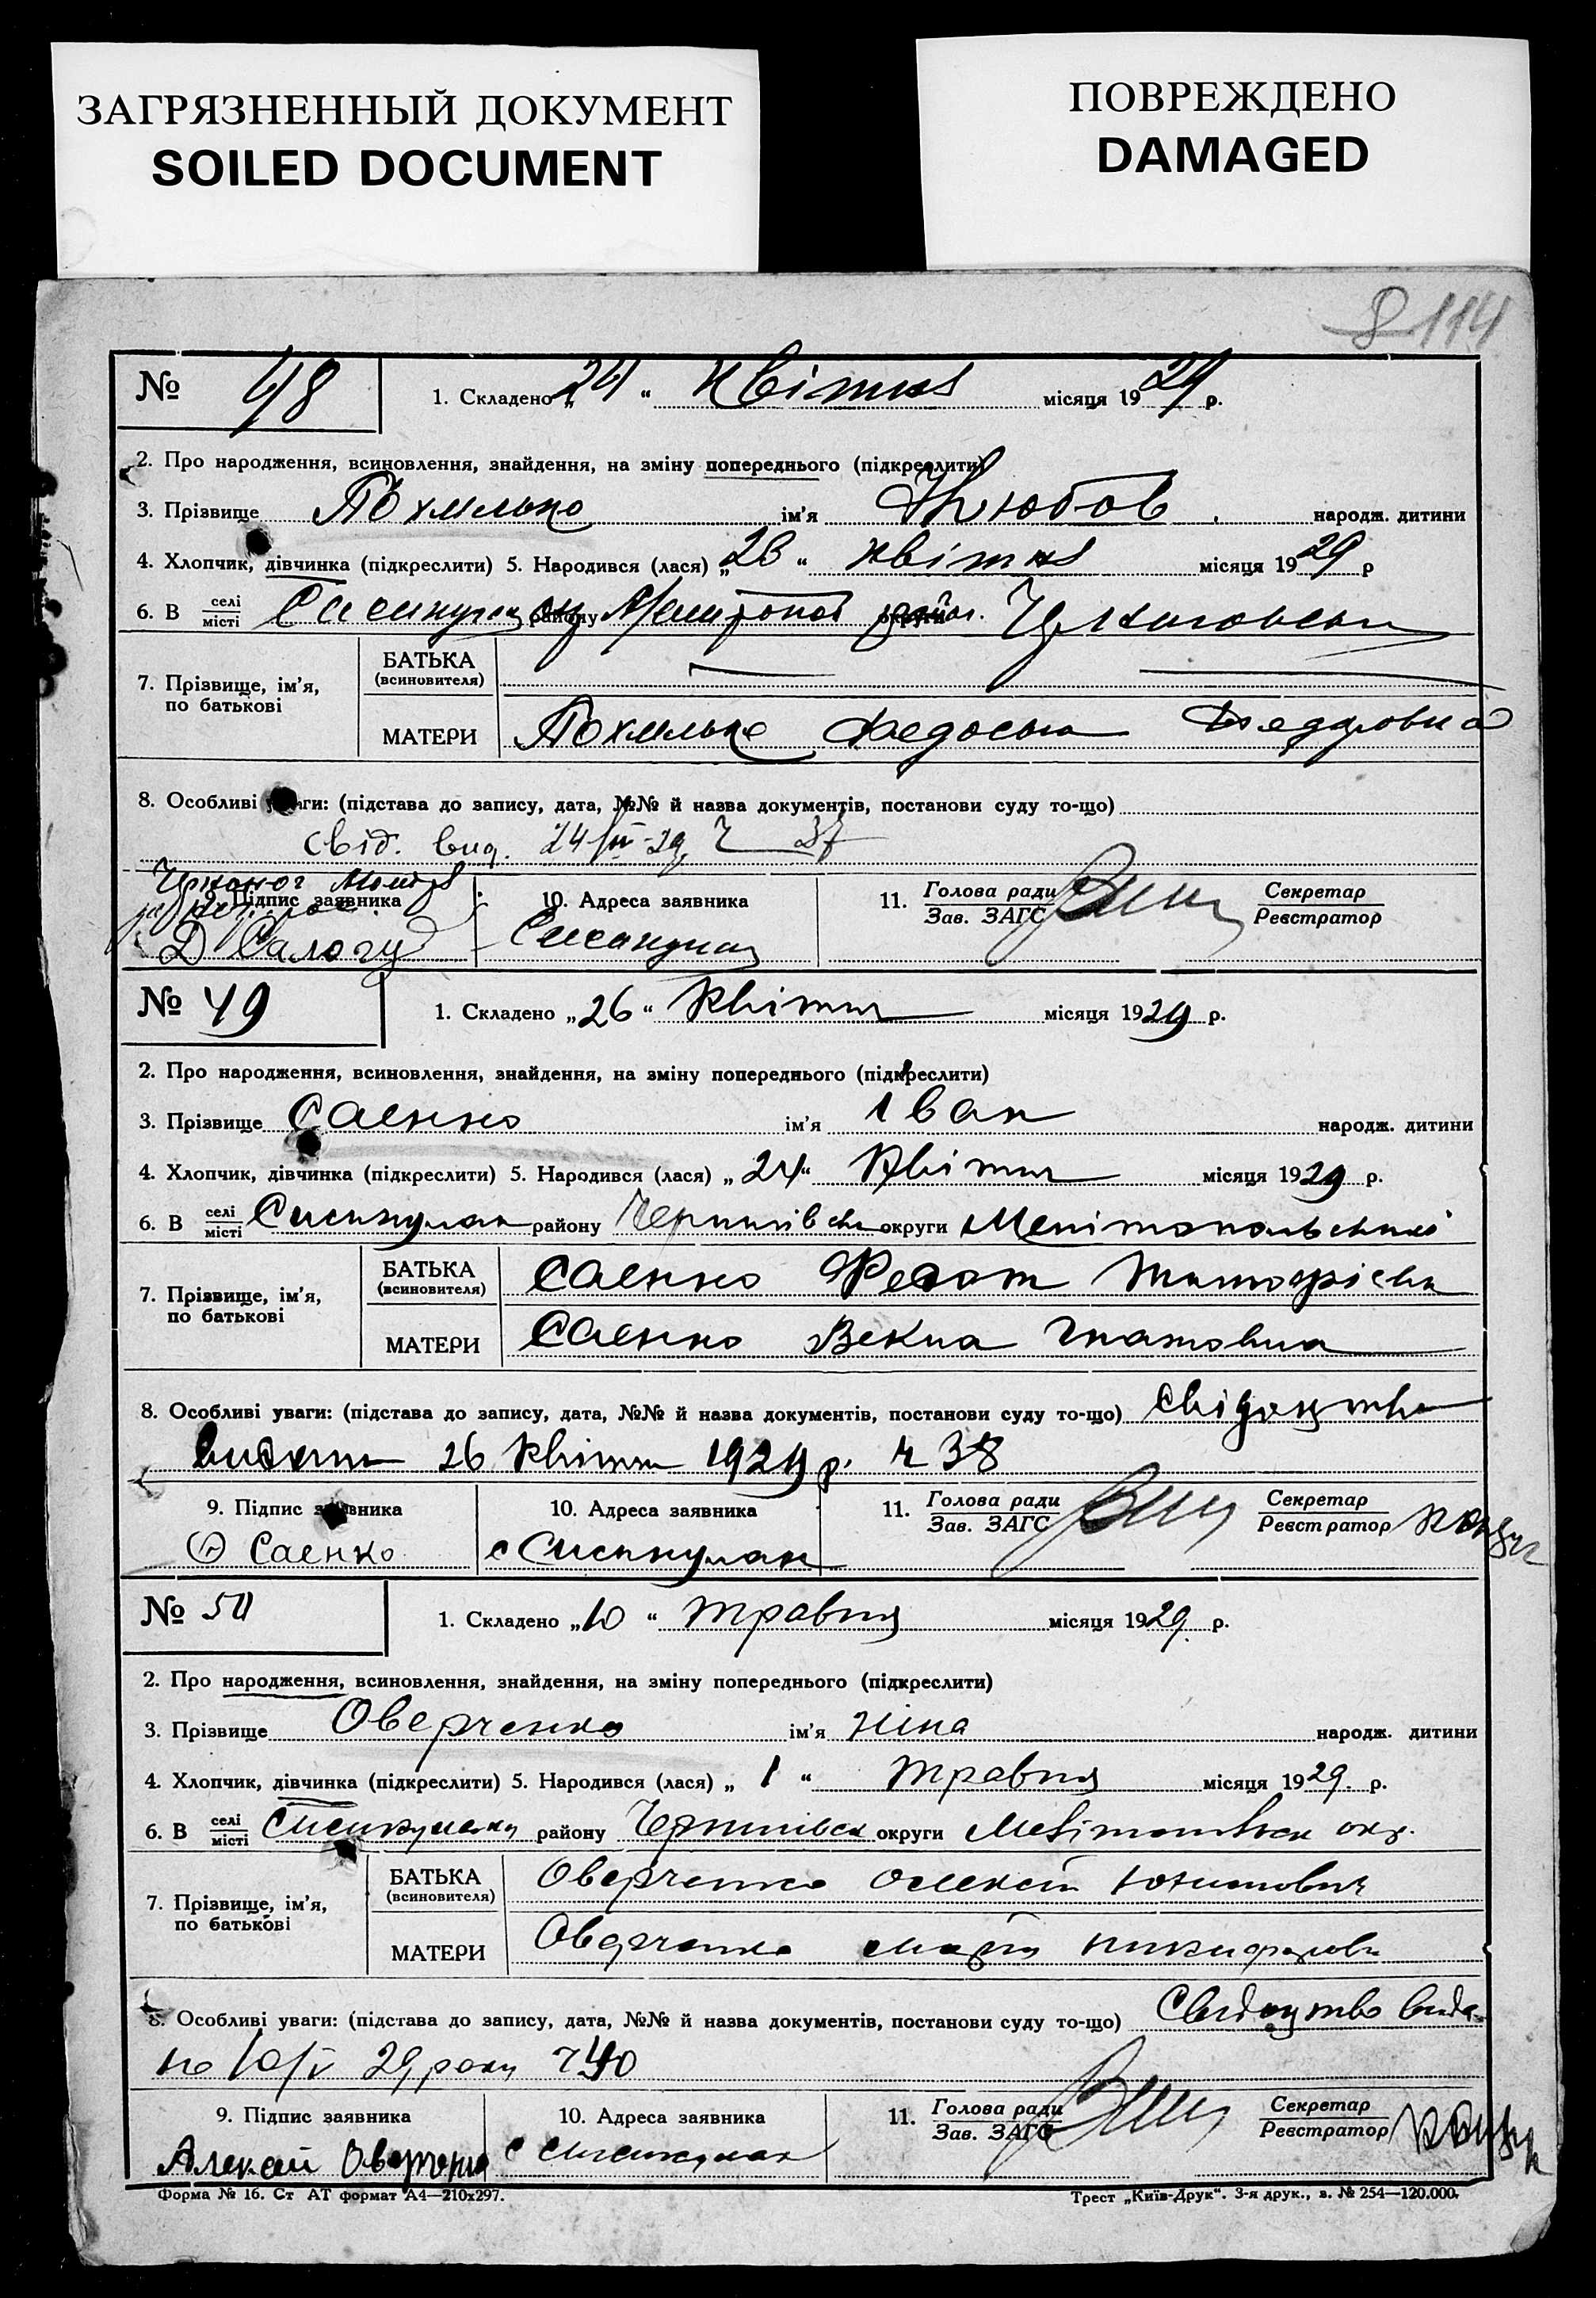 ЗАГРЯЗНЕННЫЙ ДОКУМЕНТ
SOILED DOCUMENT
ПОВРЕЖДЕНО
DAMAGED
8 114
№ 48
1. Складено „24“ квітня місяця 1929 р.
2. Про народження, всиновлення, знайдення, на зміну попереднього (підкреслити)
3. Прізвище Похилько ім’я Любов народж. дитини
4. Хлопчик, дівчинка (підкреслити) 5. Народився (лася) „23“ квітня місяця 1929 р
6. В селі місті району округи
7. Прізвище, ім’я, по батькові
БАТЬКА (всиновителя)
МАТЕРИ Похилько Федоська Федоровна
8. Особливі уваги: (підстава до запису, дата, №№ й назва документів, постанови суду то-що)
свід. вид. 24/IV-29 37
9. Підпис заявника 10. Адреса заявника 11. Голова ради Зав. ЗАГС Секретар Реєстратор
№ 49
1. Складено „26“ квітня місяця 1929 р.
2. Про народження, всиновлення, знайдення, на зміну попереднього (підкреслити)
3. Прізвище Саєнко ім’я Іван народж. дитини
4. Хлопчик, дівчинка (підкреслити) 5. Народився (лася) „24“ квітня місяця 1929 р.
6. В селі місті району Чернигівськ округи Мелітопольської
7. Прізвище, ім’я, по батькові
БАТЬКА (всиновителя) Саєнко Федот
МАТЕРИ Саєнко Векла Гнатовна
8. Особливі уваги: (підстава до запису, дата, №№ й назва документів, постанови суду то-що) Свідоцтво
видано 26 квітня 1929 р. ч 38
9. Підпис заявника 10. Адреса заявника 11. Голова ради Зав. ЗАГС Секретар Реєстратор
Саенко с
№ 50
1. Складено „10“ травня місяця 1929 р.
2. Про народження, всиновлення, знайдення, на зміну попереднього (підкреслити)
3. Прізвище Оверченко ім’я Ніна народж. дитини
4. Хлопчик, дівчинка (підкреслити) 5. Народився (лася) „1“ травня місяця 1929 р.
6. В селі місті району Чернигівськ округи окр.
7. Прізвище, ім’я, по батькові
БАТЬКА (всиновителя) Оверченко Олексій
МАТЕРИ Оверченко Марія
8. Особливі уваги: (підстава до запису, дата, №№ й назва документів, постанови суду то-що) Свидоцтво вида-
но 10/V 29 року ч 40
9. Підпис заявника 10. Адреса заявника 11. Голова ради Зав. ЗАГС Секретар Реєстратор
Алексей с
Форма № 16. Ст АТ формат А4—210x297.
Трест „Київ-Друк“. 3-я друк., з. № 254—120.000.